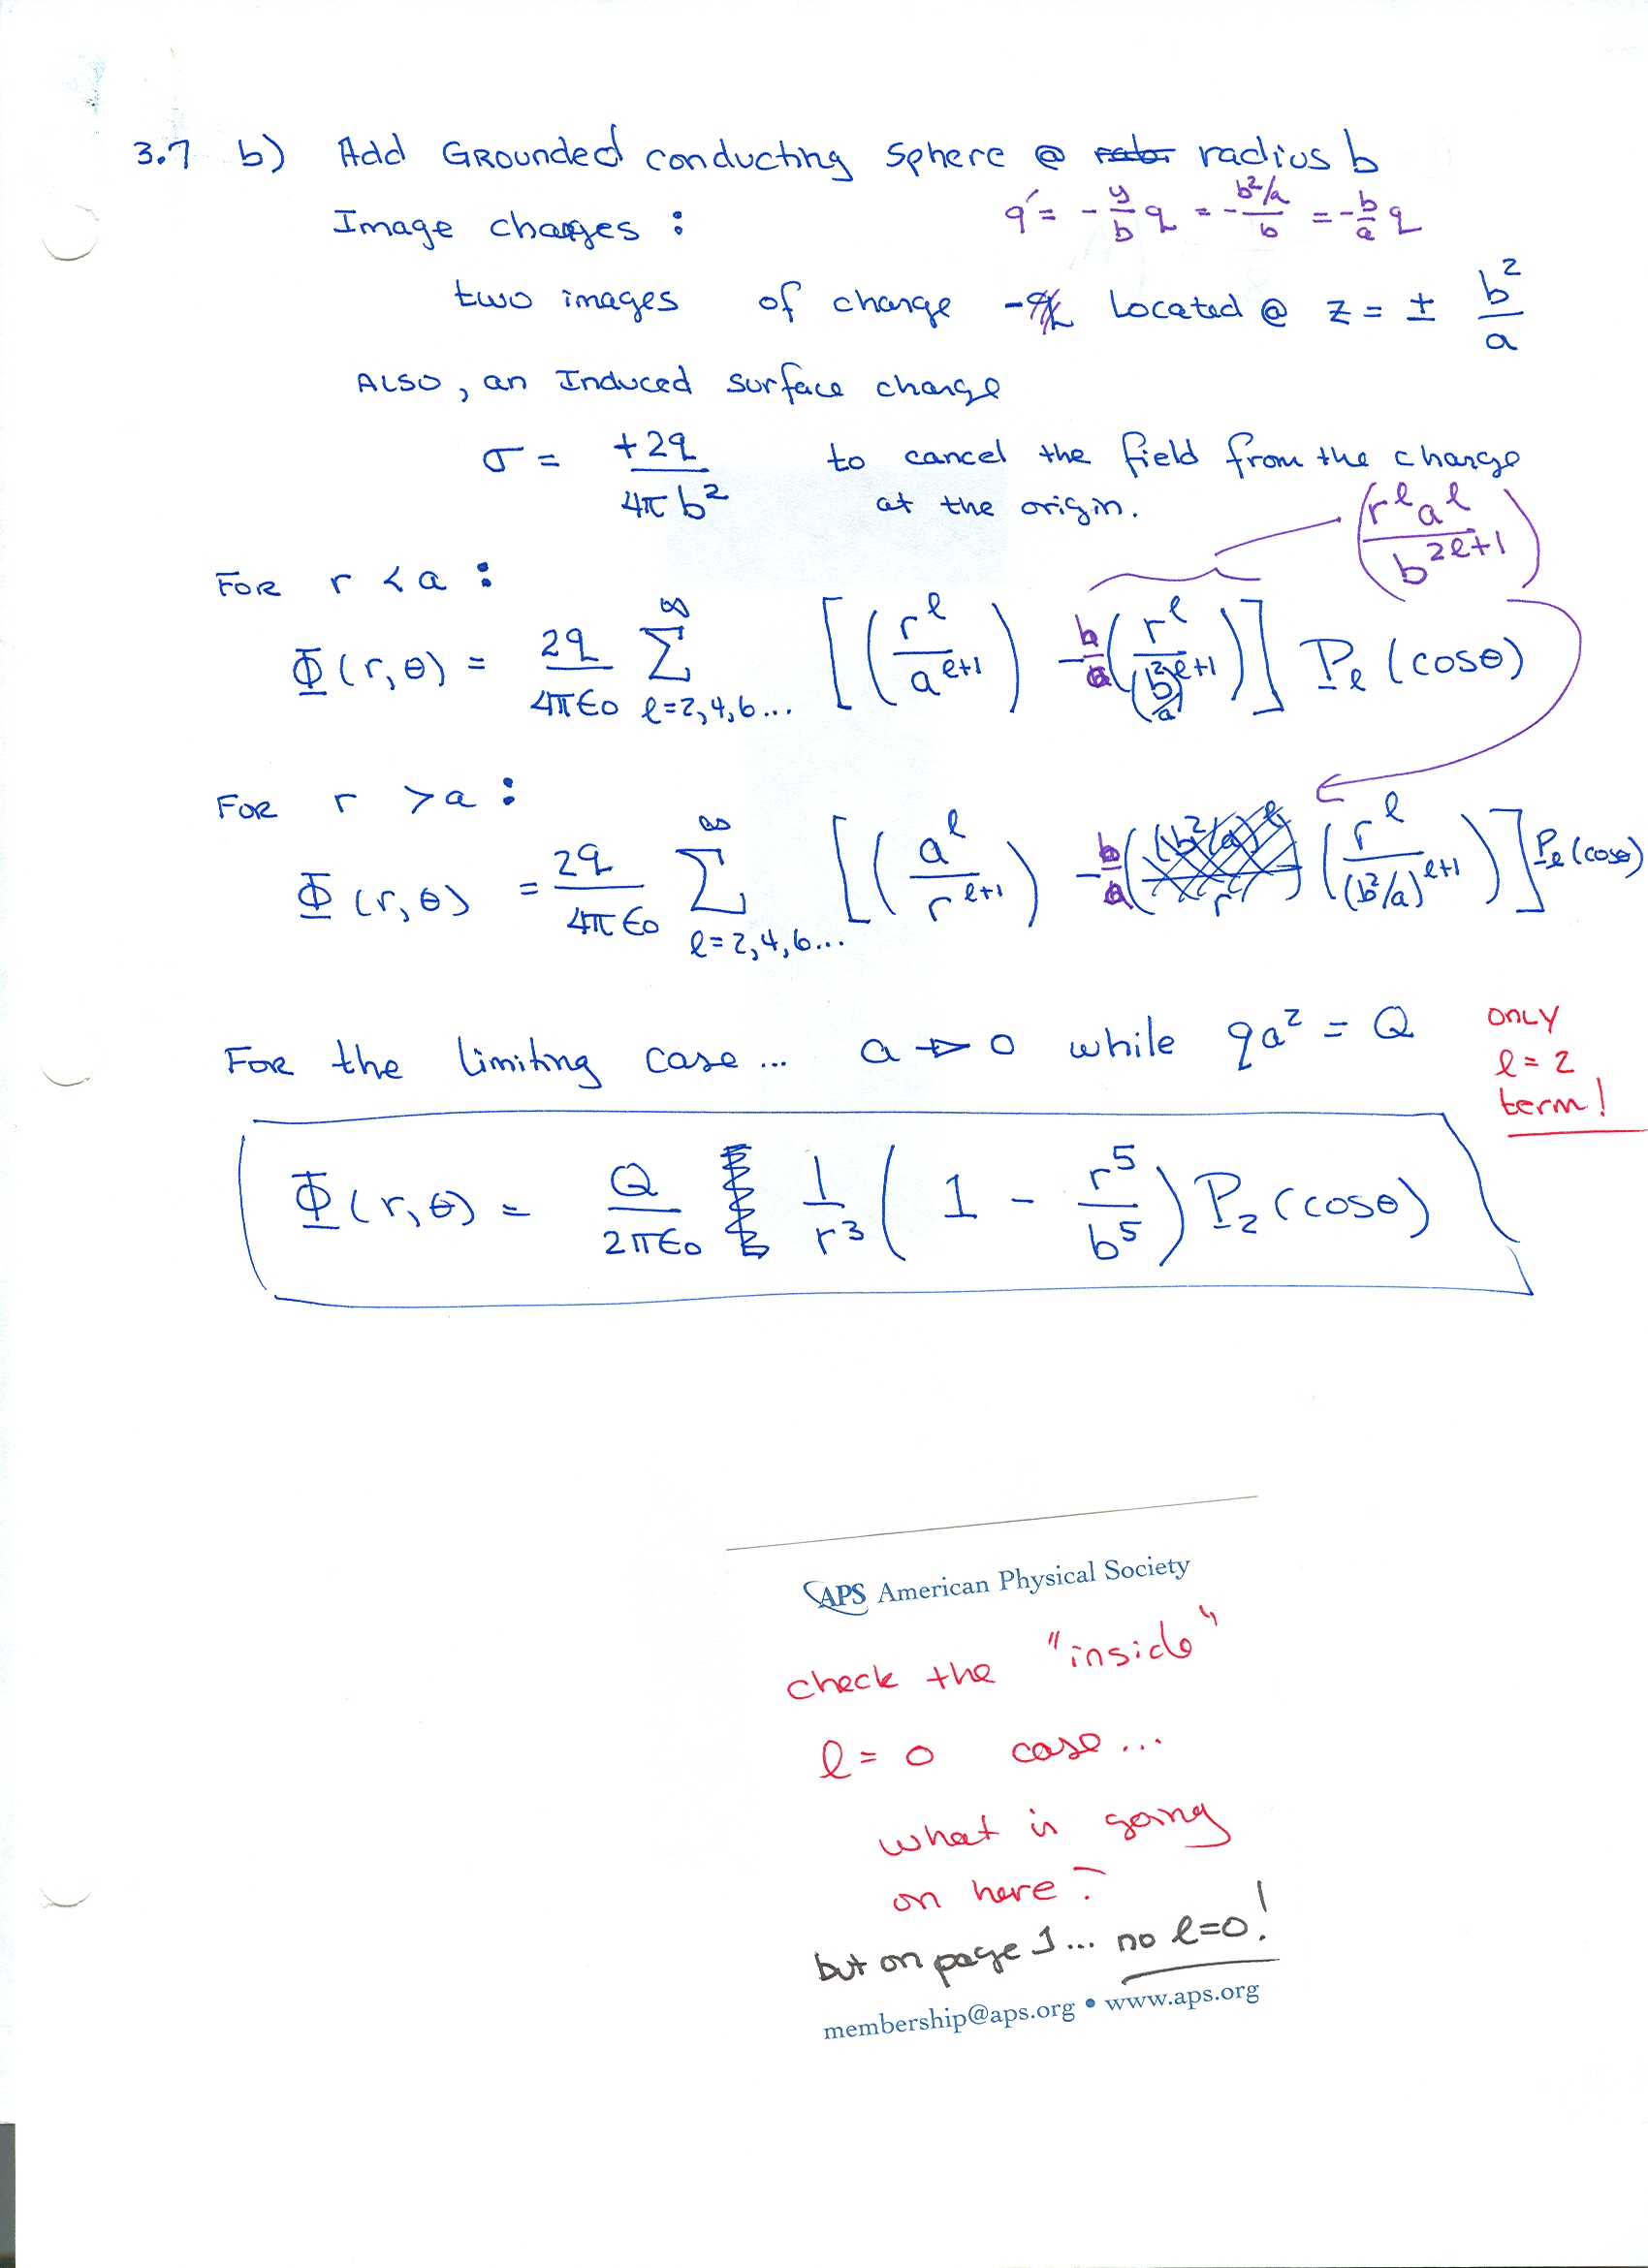 3.7 b) Add Grounded conducting sphere @ radius b
Image charges : q' = - y/b q = - (b²/a)/b = - b/a q
two images of charge -q Located @ z = ± b²/a
ALSO, an Induced surface charge
σ = +2q / 4π b² to cancel the field from the charge
at the origin.
(r^ℓ a^ℓ / b^(2ℓ+1))
For r < a :
Φ(r,θ) = 2q/4πε₀ Σ^∞_{ℓ=2,4,6...} [ (r^ℓ / a^(ℓ+1)) - b/a (r^ℓ / (b²/a)^(ℓ+1)) ] P_ℓ (cosθ)
For r > a :
Φ(r,θ) = 2q/4πε₀ Σ^∞_{ℓ=2,4,6...} [ (a^ℓ / r^(ℓ+1)) - b/a (r^ℓ / (b²/a)^(ℓ+1)) ] P_ℓ (cosθ)
For the limiting case... a → 0 while qa² = Q
only
ℓ = 2
term!
Φ(r,θ) = Q/2πε₀ 1/r³ ( 1 - r⁵/b⁵ ) P₂ (cosθ)
APS American Physical Society
check the "inside"
ℓ = 0 case...
what is going
on here?
but on page 1... no ℓ=0!
membership@aps.org • www.aps.org